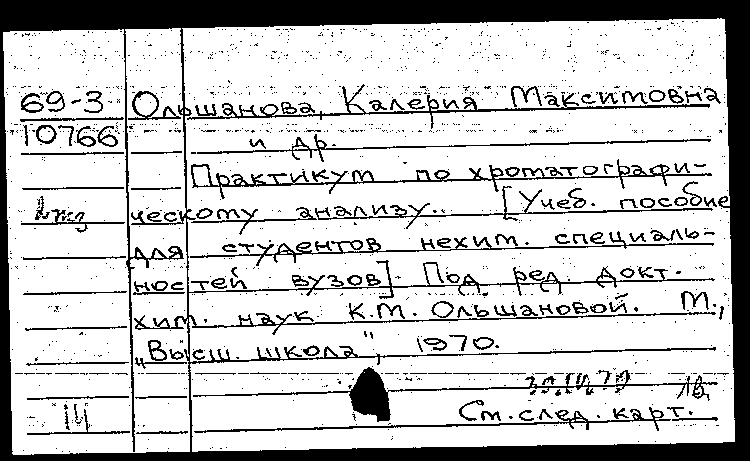 69-3 Ольшанова, Калерия Максимовна
10766 и др.
Практикум по хроматографи-
ческому анализу.. [Учеб. пособие
для студентов нехим. специаль-
ностей вузов]. Под ред. докт.
хим. наук К.М. Ольшановой. М.,
„Высш. школа", 1970.
См. след. карт.